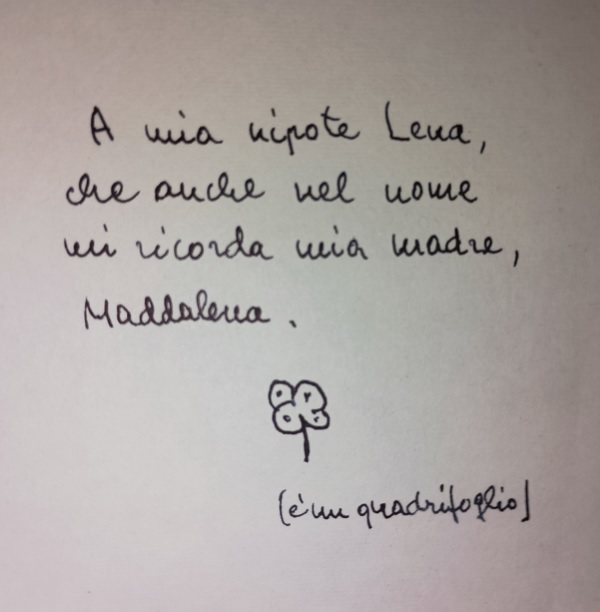 A mia nipote Lena,
che anche nel nome
mi ricorda mia madre,
Maddalena.
[è un quadrifoglio]